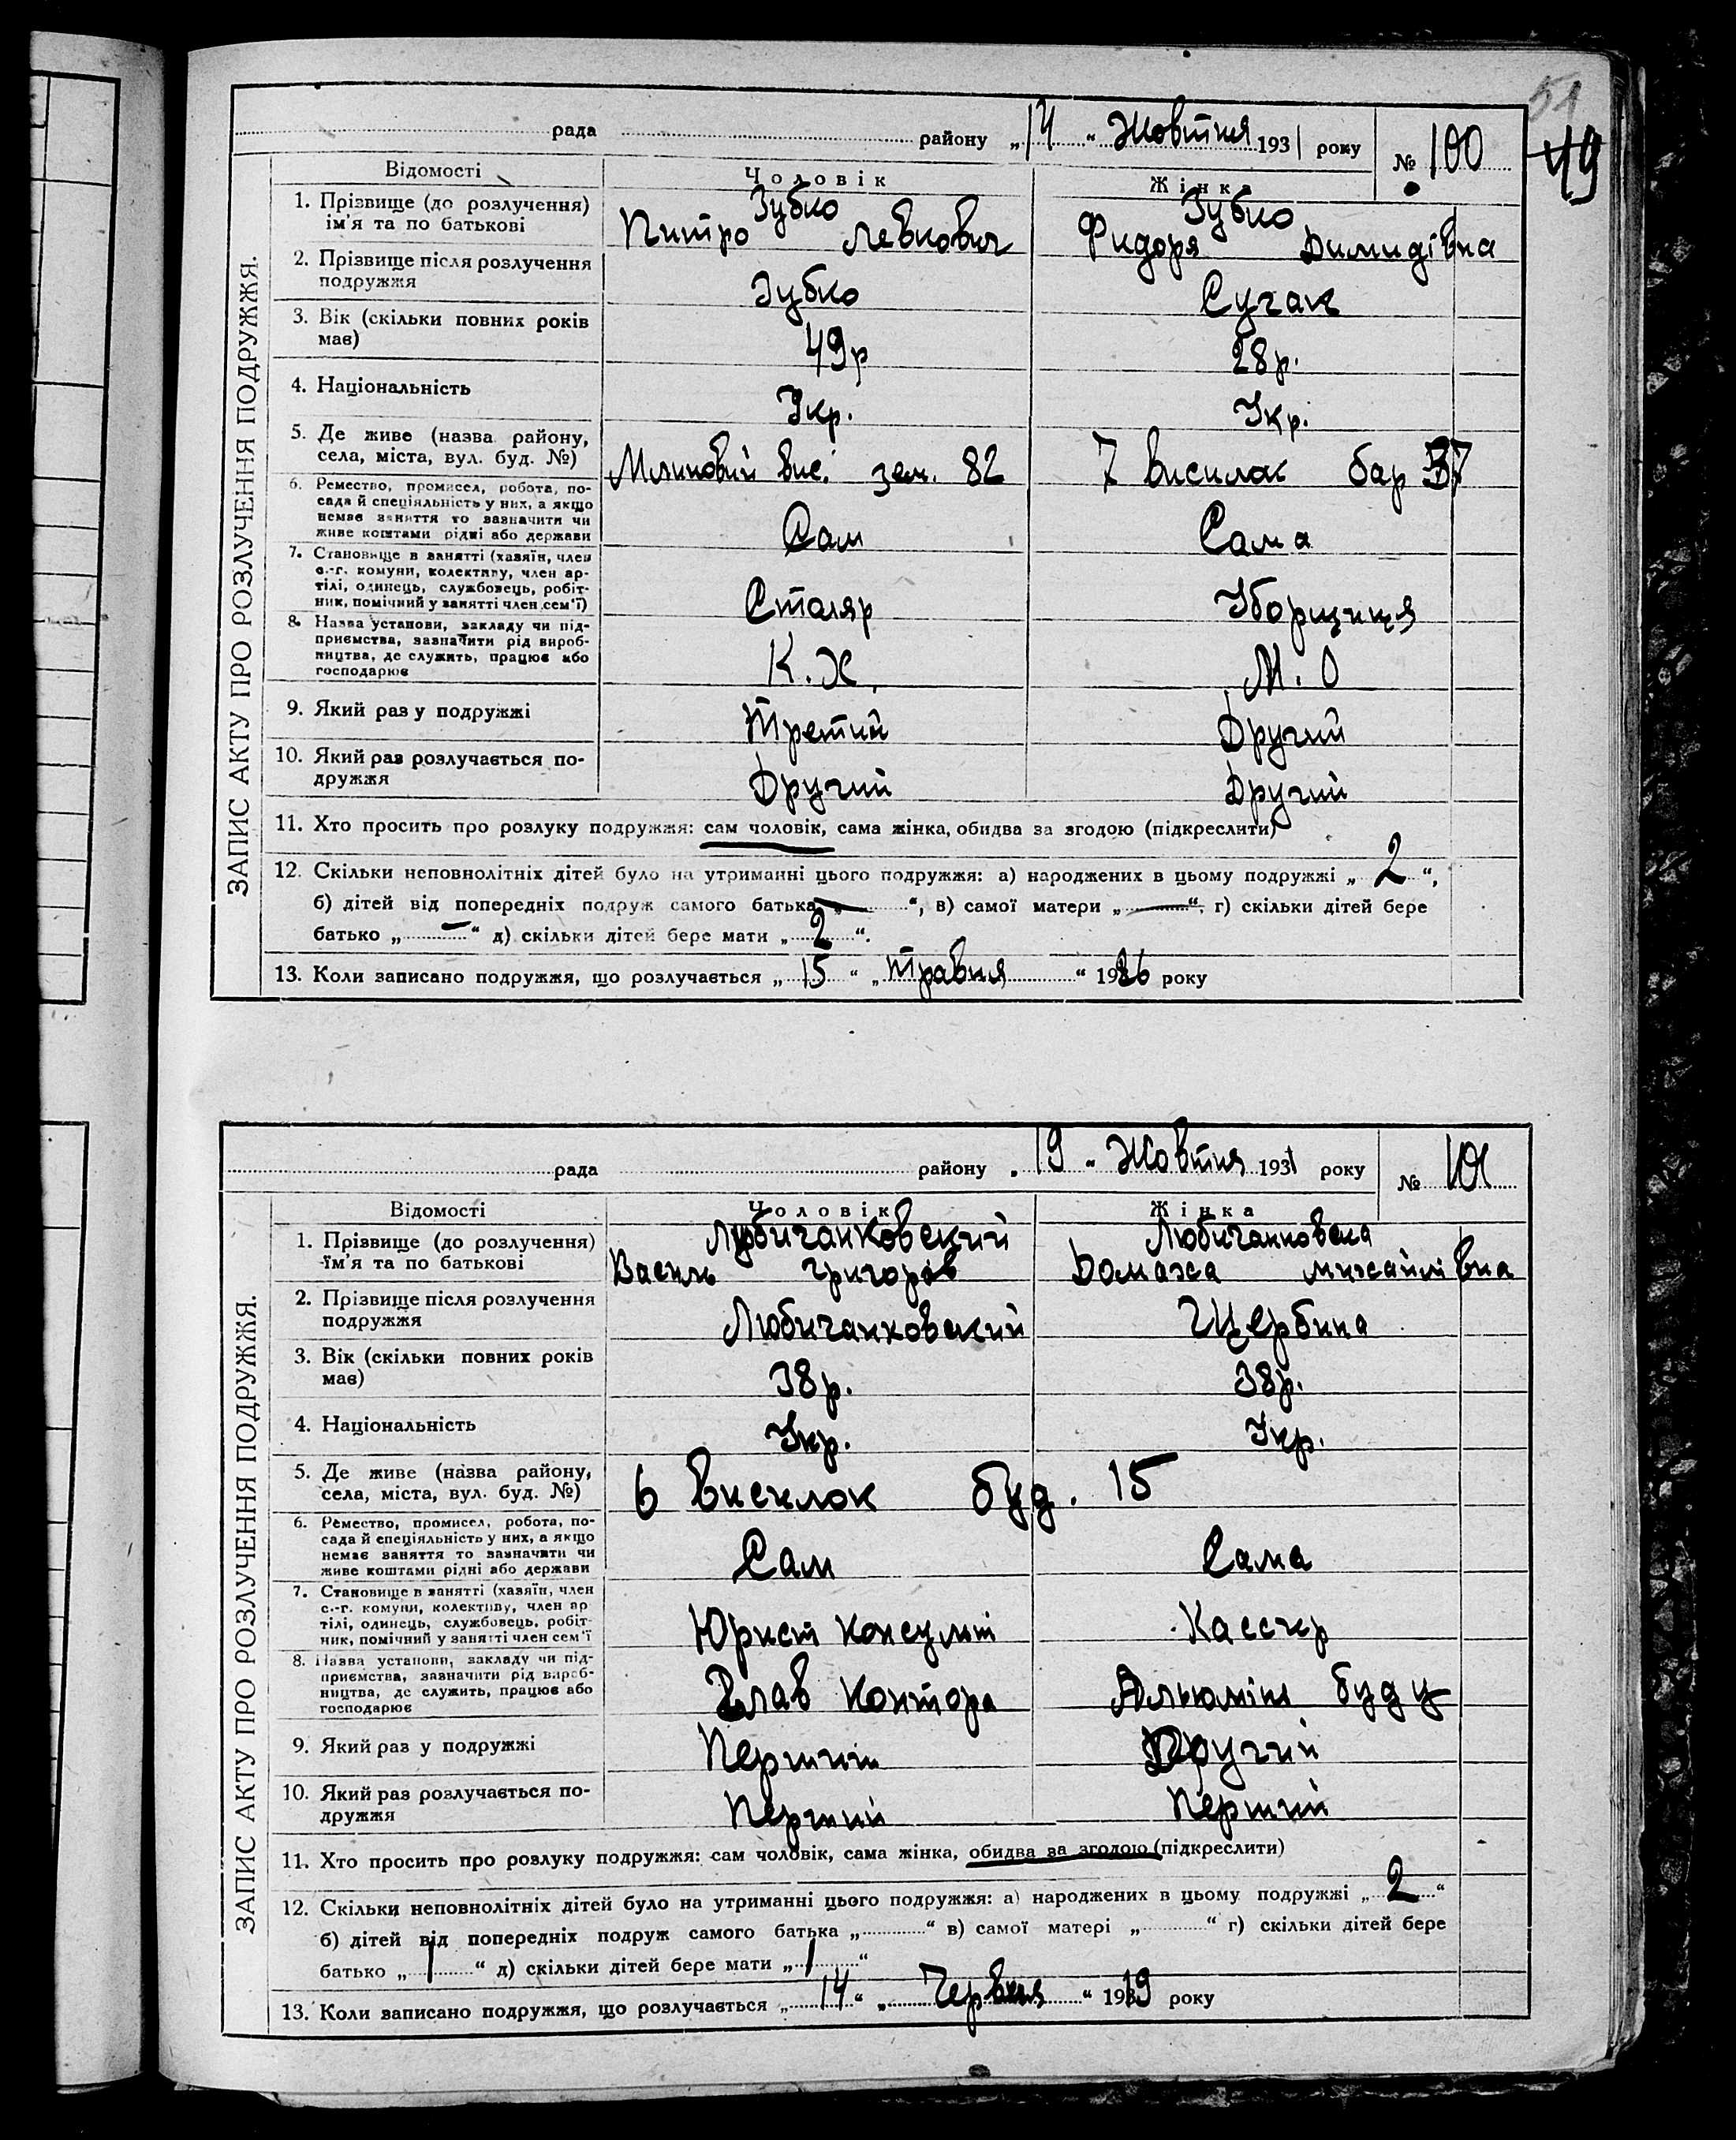 51
49
рада району „14“ Жовтня 1931 року № 100
ЗАПИС АКТУ ПРО РОЗЛУЧЕННЯ ПОДРУЖЖЯ.
Відомості Чоловік Жінка
1. Прізвище (до розлучення) Зубко Зубко
ім'я та по батькові Питро Левкович Фидоря Димидівна
2. Прізвище після розлучення
подружжя Зубко Сучак
3. Вік (скільки повних років
має) 49р 28р.
4. Національність Укр. Укр.
5. Де живе (назва району,
села, міста, вул. буд. №) Млиновий вис. зем. 82 7 висилок бар 37
6. Ремество, промисел, робота, по-
сада й спеціяльність у них, а якщо
немає заняття то зазначити чи
живе коштами рідні або держави Сам Сама
7. Становище в занятті (хазяїн, член
с.-г. комуни, колективу, член ар-
тілі, одинець, службовець, робіт-
ник, помічний у занятті член сем'ї) Столяр Уборщиця
8. Назва установи, закладу чи під-
приємства, зазначити рід вироб-
ництва, де служить, працює або
господарює К.Х. М.О
9. Який раз у подружжі Третий Другий
10. Який раз розлучається по-
дружжя Другий Другий
11. Хто просить про розлуку подружжя: сам чоловік, сама жінка, обидва за згодою (підкреслити)
12. Скільки неповнолітніх дітей було на утриманні цього подружжя: а) народжених в цьому подружжі „2“,
б) дітей від попередніх подруж самого батька „—“, в) самої матери „—“. г) скільки дітей бере
батько „—“ д) скільки дітей бере мати „2“.
13. Коли записано подружжя, що розлучається „15“ „Травня“ 1926 року
рада району „19“ Жовтня 1931 року № 101
ЗАПИС АКТУ ПРО РОЗЛУЧЕННЯ ПОДРУЖЖЯ.
Відомості Чоловік Жінка
1. Прізвище (до розлучення) Любичанковский Любичанковска
ім'я та по батькові Василь Григоров Домаха михайлівна
2. Прізвище після розлучення
подружжя Любичанковский Щербина
3. Вік (скільки повних років
має) 38р. 38р.
4. Національність Укр. Укр.
5. Де живе (назва району,
села, міста, вул. буд. №) 6 висилок буд. 15
6. Ремество, промисел, робота, по-
сада й спеціяльність у них, а якщо
немає заняття то зазначити чи
живе коштами рідні або держави Сам Сама
7. Становище в занятті (хазяїн, член
с.-г. комуни, колективу, член ар
тілі, одинець, службовець, робіт-
ник, помічний у занятті член сем'ї Юрист консульт Кассир
8. Назва установи, закладу чи під-
приємства, зазначити рід вироб-
ництва, де служить, працює або
господарює Глав контора Альюмін буду
9. Який раз у подружжі Перший Другий
10. Який раз розлучається по-
дружжя Перший Перший
11. Хто просить про розлуку подружжя: сам чоловік, сама жінка, обидва за згодою (підкреслити)
12. Скільки неповнолітніх дітей було на утриманні цього подружжя: а) народжених в цьому подружжі „2“
б) дітей від попередніх подруж самого батька „“ в) самої матері „“ г) скільки дітей бере
батько „1“ д) скільки дітей бере мати „1“
13. Коли записано подружжя, що розлучається „14“ „Червня“ 1919 року